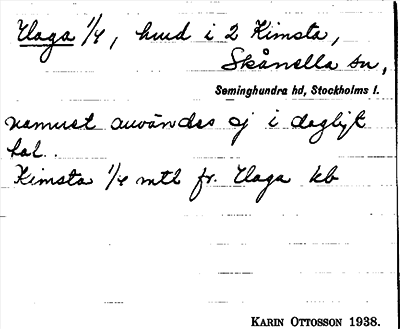 Ulaga 1/4, hmd i 2 Kimsta,
Skånella sn,
Seminghundra hd, Stockholms l.
namnet användes ej i dagligt
tal.
Kimsta 1/4 mtl fr. Ulaga kb
KARIN OTTOSSON 1938.